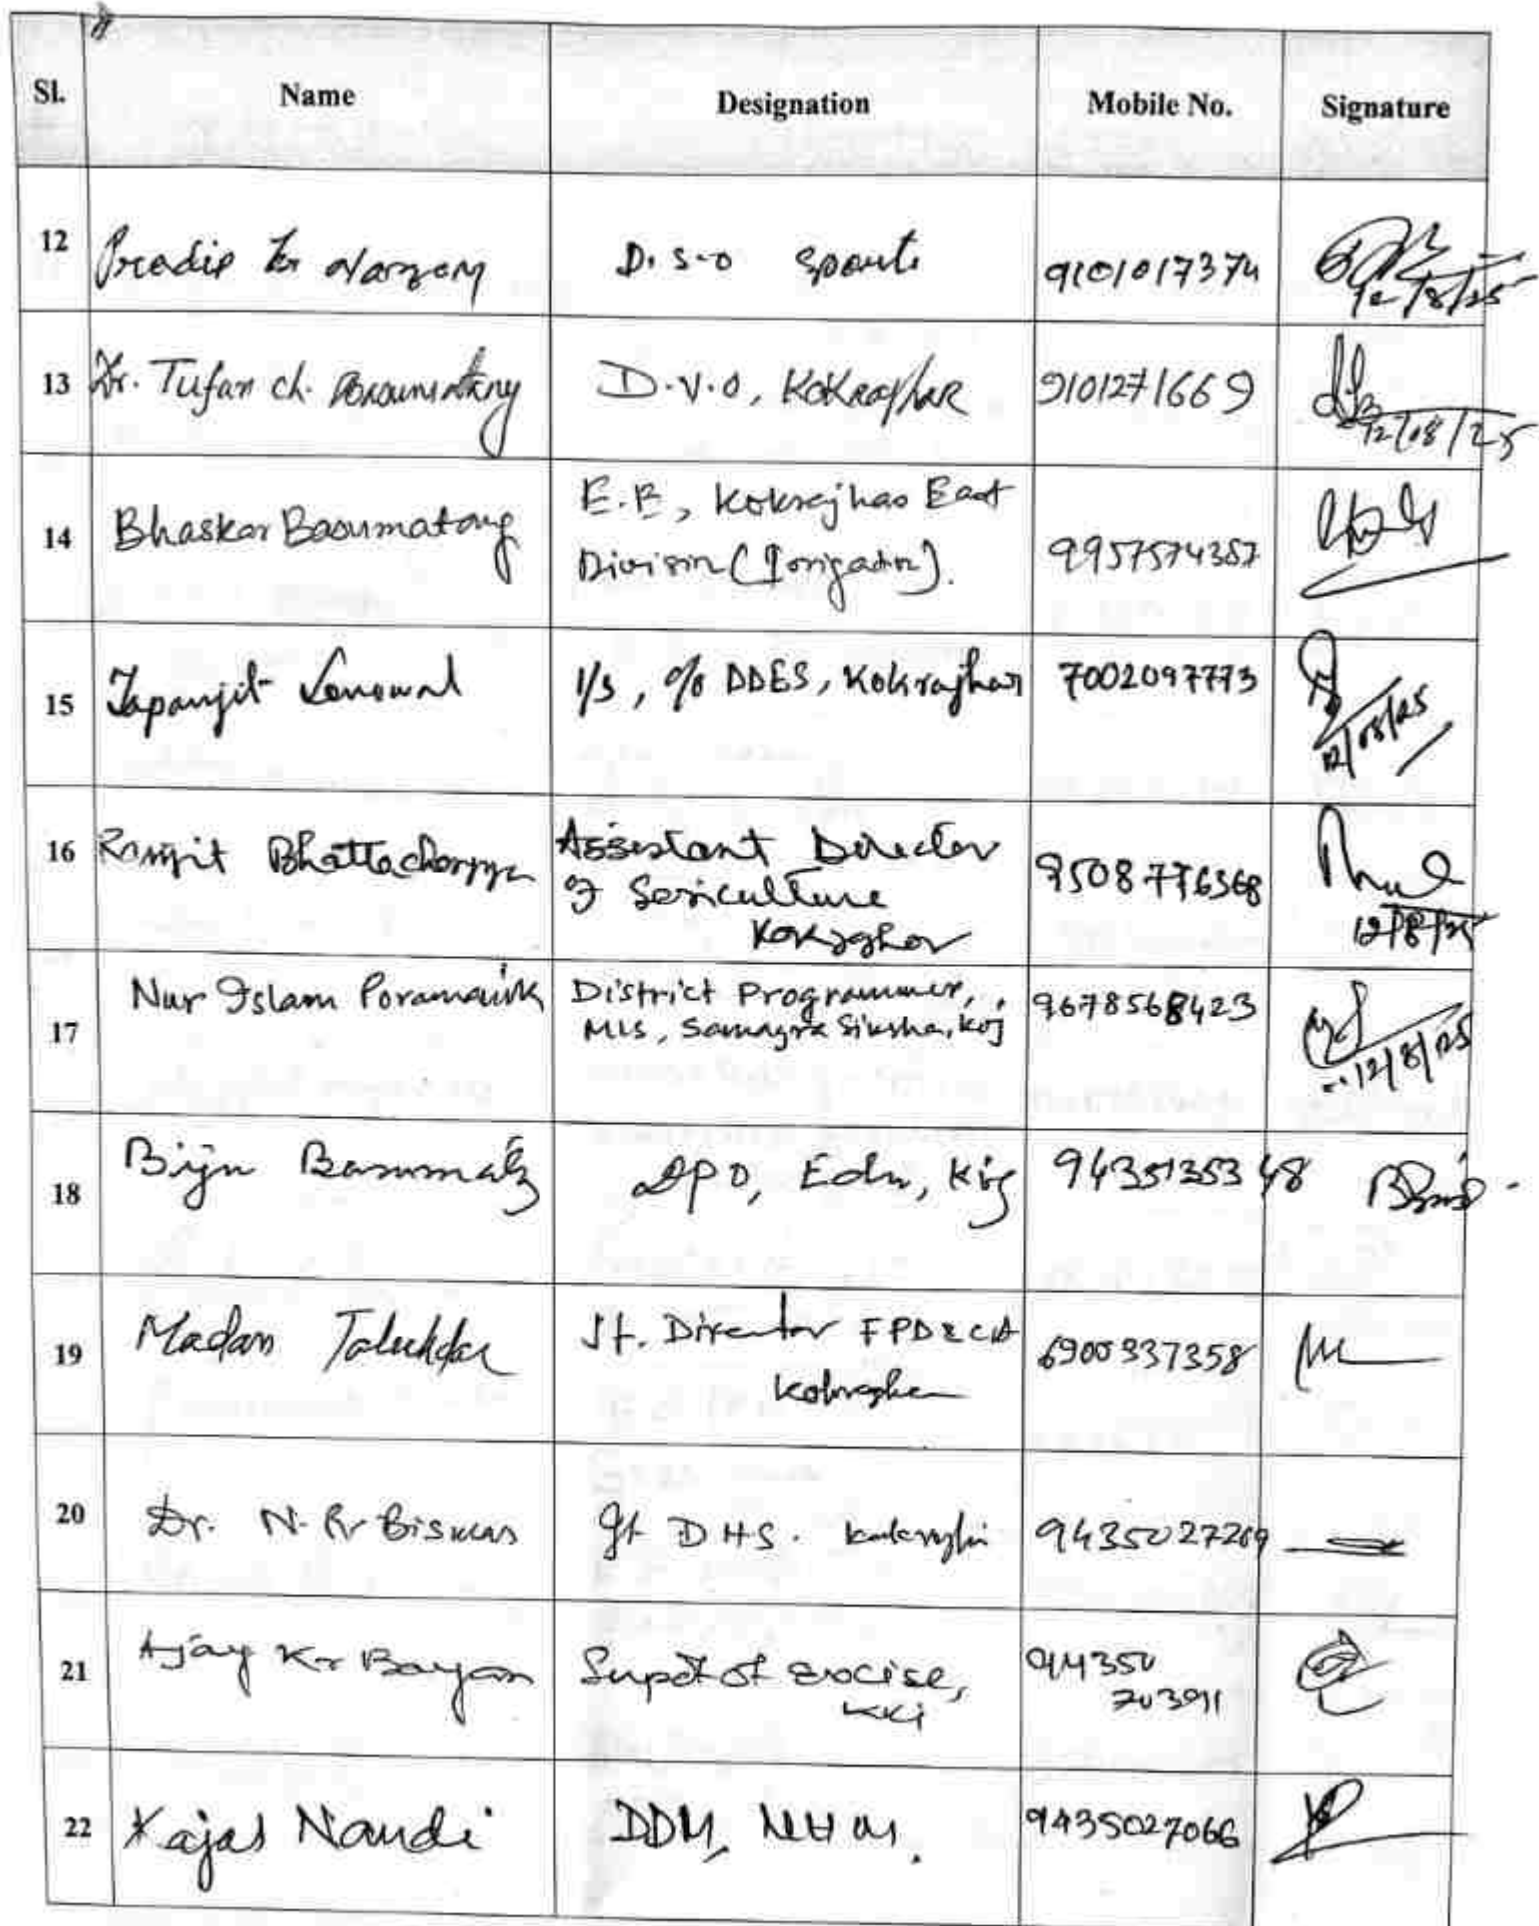 Sl. Name Designation Mobile No. Signature
12 Pradip Kr Narzary D.S.O Sports 9101017374
12/8/25
13 Dr. Tufan ch. Basumatary D.V.O, Kokrajhar 9101271669
12/08/25
14 Bhaskar Basumatary E.E, Kokrajhar East
Division (Irrigation). 9957574357
15 Tapanjit Sonowal I/S, O/o DDES, Kokrajhar 7002097773
12/08/25
16 Ranjit Bhattacharyya Assistant Director
of Sericulture 9508776368
Kokrajhar
12/8/25
17 Nur Islam Poramanik District Programmer,
MIS, Samagra Siksha, Koj 9678568423
12/8/25
18 Biju Basumatary DPO, Edn, Koj 9435135348
19 Madan Talukdar Jt. Director FPD&CA 6900337358
Kokrajhar
20 Dr. N. Kr Biswas Jt DHS. Kokrajhar 9435027269
21 Ajay Kr Bayan Supdt of Excise,
KKJ 94350
70391
22 Kajal Nandi DDM, NHM. 9435027066